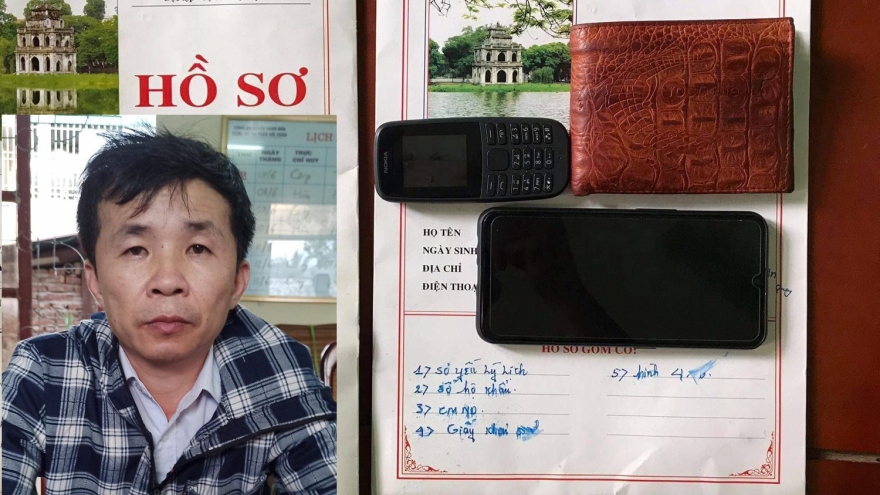 HỒ SƠ
LỊCH
NGÀY THÁNG
TRỰC CHỈ HUY
NOKIA
HỌ TÊN
NGÀY SINH
ĐỊA CHỈ
ĐIỆN THOẠ
HỒ SƠ GỒM CÓ:
1> sơ yếu lý lịch
2> sổ hộ khẩu.
3> CMND.
4> Giấy khai
5> hình 4